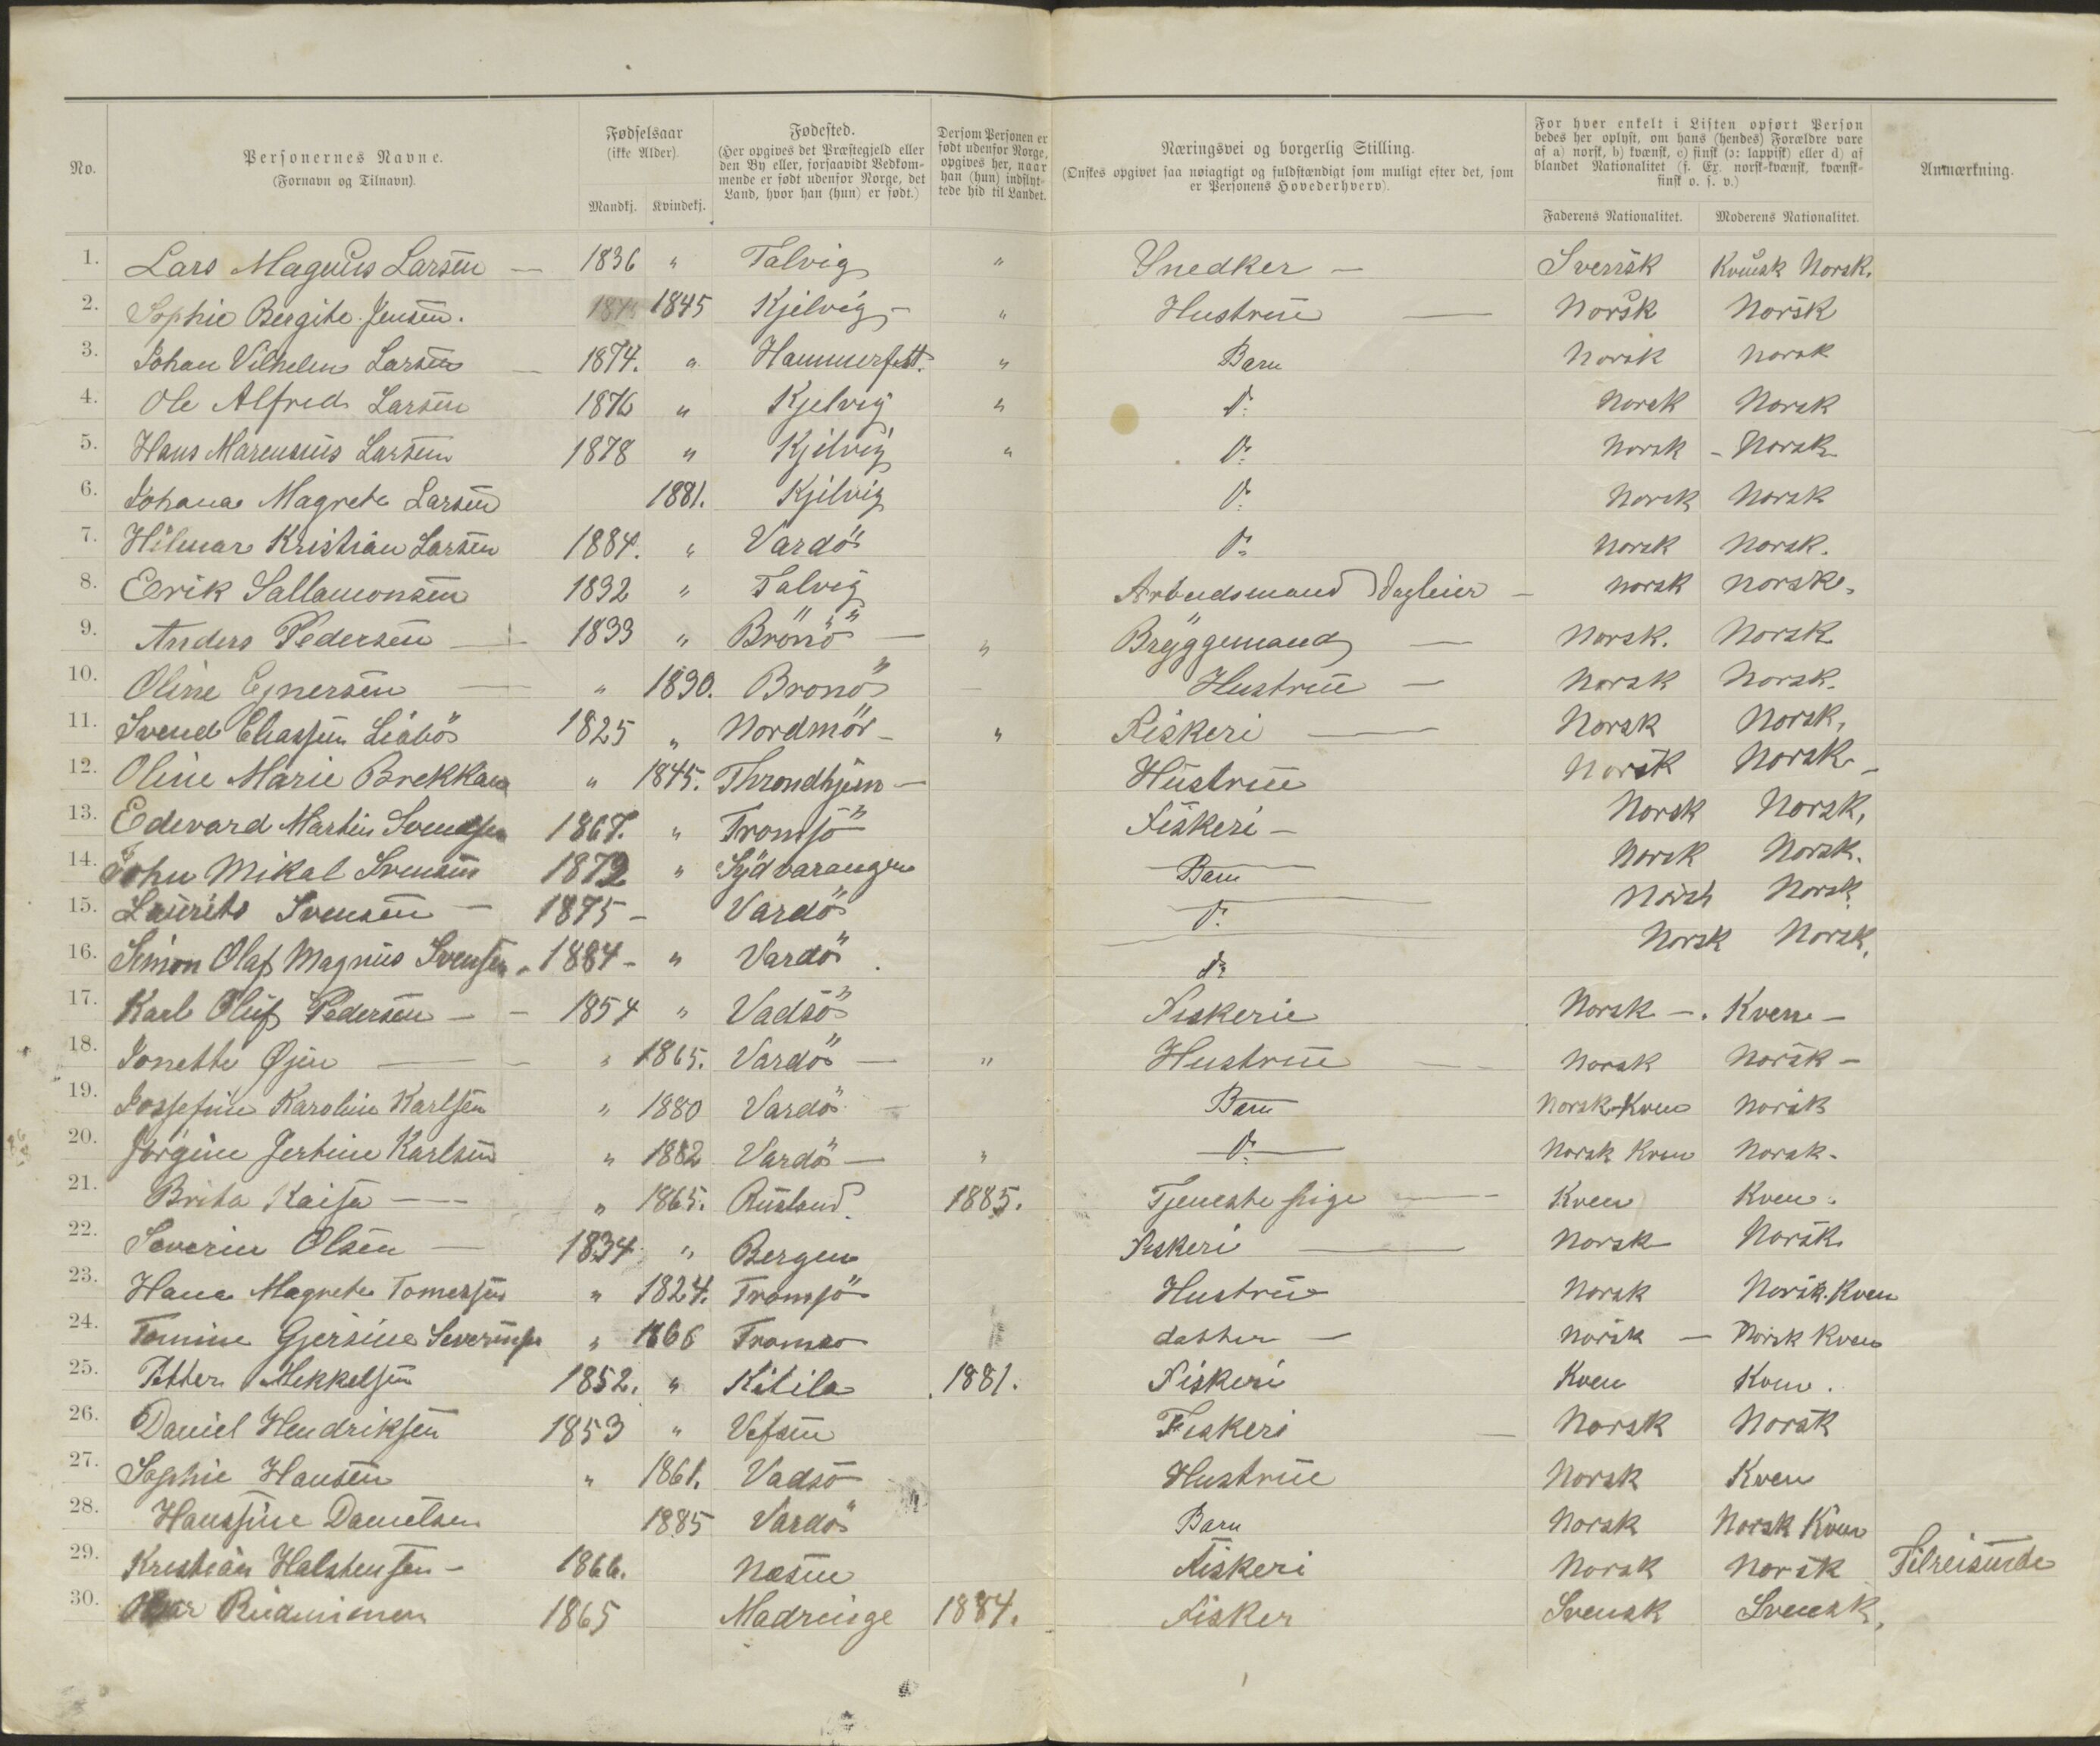 No.
Personernes Navne.
(Fornavn og Tilnavn).
Fødselsaar
(ikke Alder).
Mandkj. Kvindekj.
Fødested.
(Her opgives det Præstegjeld eller
den By eller, forsaavidt Vedkom-
mende er født udenfor Norge, det
Land, hvor han (hun) er født.)
Dersom Personen er
født udenfor Norge,
opgives her, naar
han (hun) indflyt-
tede hid til Landet.
Næringsvei og borgerlig Stilling.
(Ønskes opgivet saa nøiagtigt og fuldstændigt som muligt efter det, som
er Personens Hovederhverv).
For hver enkelt i Listen opført Person
bedes her oplyst, om hans (hendes) Forældre vare
af a) norsk, b) kvænsk, c) finsk (ɔ: lappisk) eller d) af
blandet Nationalitet (f. Ex. norsk-kvænsk, kvænsk-
finsk o. s. v.)
Faderens Nationalitet. Moderens Nationalitet.
Anmærkning.
1. Lars Magnus Larsen — 1836 " Talvig " Snedker — Svensk Kvensk Norsk.
2. Sophie Bergite Jensen. 1845 Kjelvig - " Hustru — Norsk Norsk
3. Johan Vilhelm Larsen — 1874. " Hammerfest. " Barn Norsk Norsk
4. Ole Alfred Larsen 1876 " Kjelvig " do Norsk Norsk
5. Hans Marensius Larsen 1878 " Kjelvig " do Norsk - Norsk
6. Johana Magrete Larsen 1881. Kjelvig do Norsk Norsk
7. Hilmar Kristian Larsen 1884. " Vardö do Norsk Norsk.
8. Eerik Sallamonsen 1832 " Talvig Arbeidsmand Dagleier - Norsk Norsk.
9. Anders Pedersen — 1833 " Brönö — " Bryggemand — Norsk. Norsk.
10. Oline Ejnersen — " 1830. Bronö — Hustru — Norsk Norsk.
11. Svend Eliassen Liabö 1825 " Nordmör - " Fiskeri — Norsk Norsk,
12. Oline Marie Brekkan " 1845. Throndhjem — Hustru Norsk Norsk -
13. Edevard Martin Svendsen 1867. " Tromsö Fiskeri — Norsk Norsk,
14. John Mikal Svensen 1872 " Sydvaranger Barn Norsk Norsk.
15. Laurits Svensen — 1875 - Vardö do Norsk Norsk.
16. Simon Olaf Magnus Svensen " 1884 - " Vardö do Norsk Norsk.
17. Karl Oluf Pedersen - - 1854 " Vadsö Fiskerie Norsk -. Kven -
18. Jonette Øjen — " 1865. Vardö — " Hustru Norsk Norsk -
19. Jossefine Karoline Karlsen " 1880 Vardö Barn Norsk-Kven Norsk
20. Jörgine Jertine Karlsen " 1882 Vardö — " do Norsk Kven Norsk -
21. Brita Kaisa — " 1865. Rusland. 1885. Tjeneste pige — Kven Kven.
22. Severin Olsen — 1834. " Bergen Fiskeri — Norsk Norsk
23. Hana Magrete Tomessen " 1824. Tromsö Hustru Norsk Norsk. Kven
24. Tomine Gjersine Severinsen " 1866 Tromso datter — Norsk — Norsk Kven
25. Petter Mekkelsen 1852. " Kitila 1881. Fiskeri Kven Kven.
26. Daniel Hendriksen 1853 " Vefsen Fiskeri — Norsk Norsk
27. Sophie Hansen " 1861. Vadso Hustru Norsk Kven
28. Hanssine Danielsen 1885 Vardö Barn Norsk Norsk Kven
29. Kristian Halstensen - 1866. Næsne Fiskeri Norsk Norsk Tilreisende
30. 1865 Madringe 1884. Fisker Svensk Svensk.